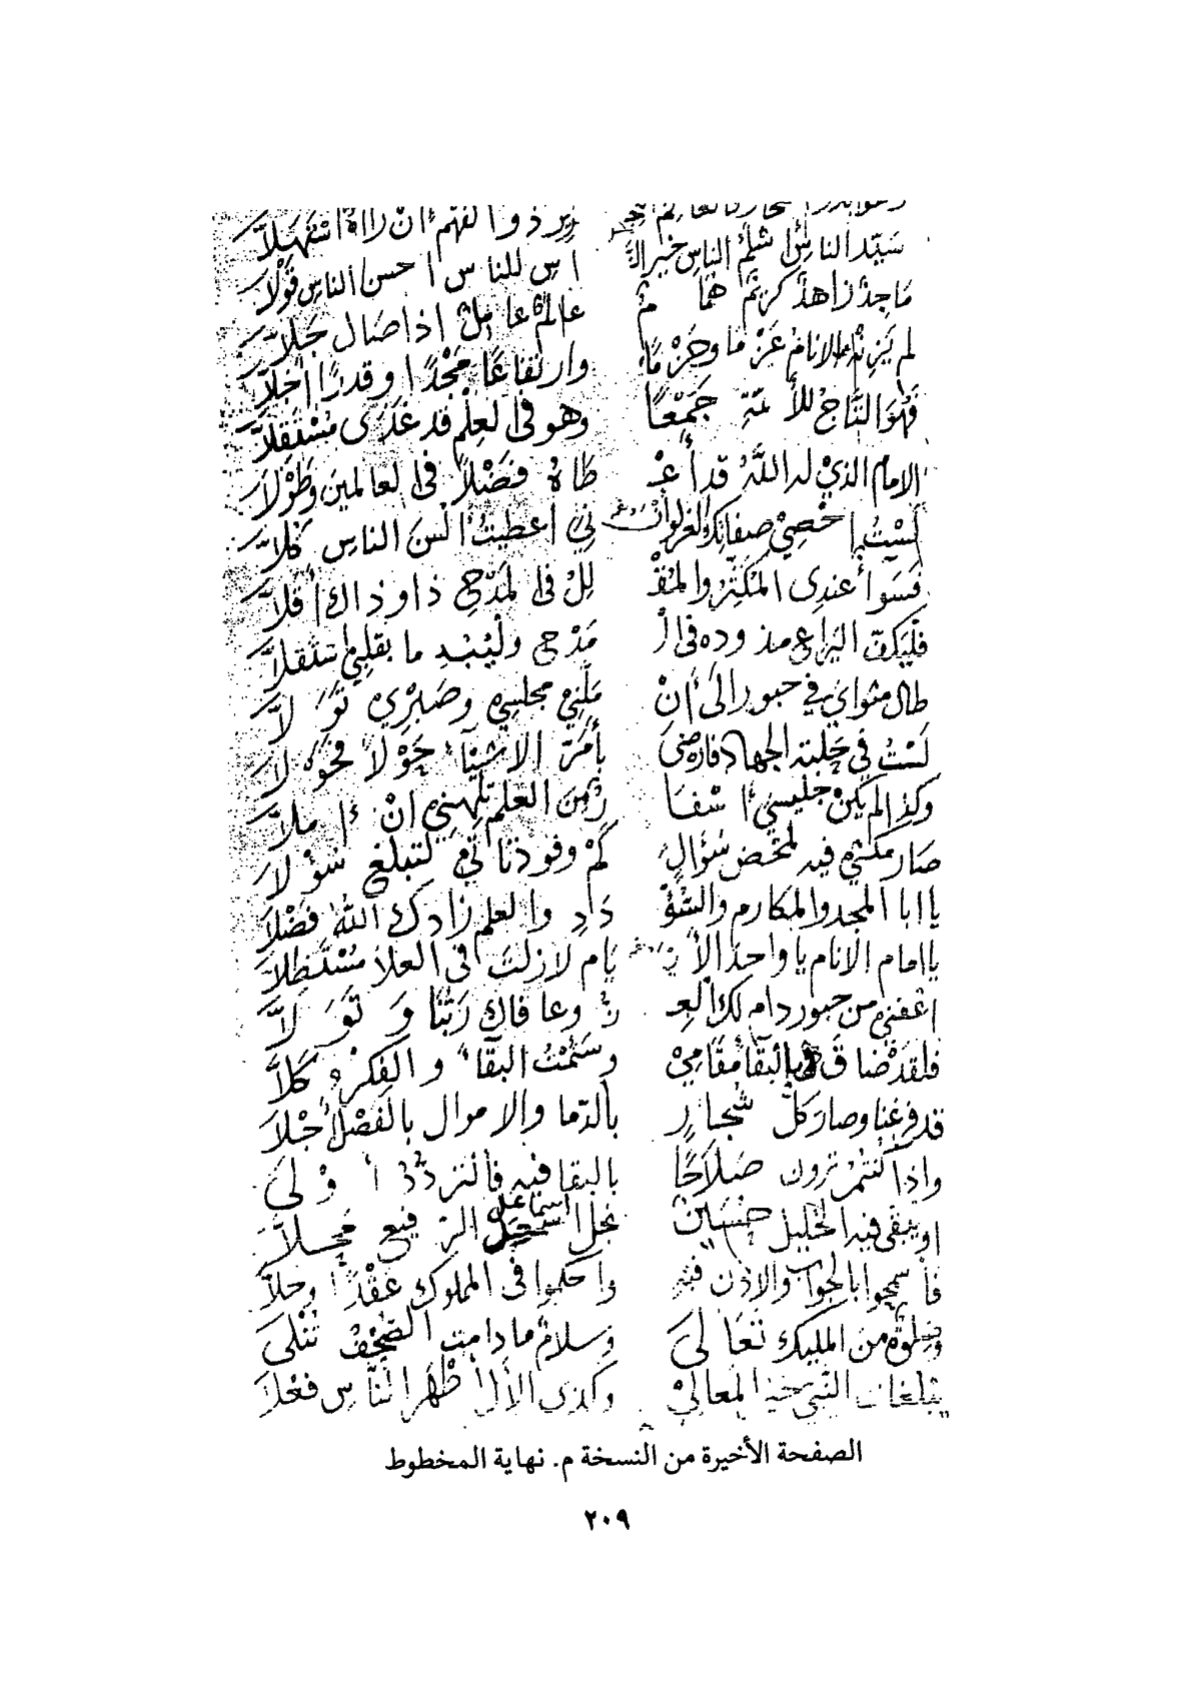 ذو الفهم ان راه استهلا
سيد الناس اسلم الناس خير الن اس للناس احسن الناس قولا
ماجد زاهد كريم هما م عالم عامل اذا صال جلا
لم يزنه الانام عزما وحزما وارتفاعا مجدا وقدرا اجلا
فهو التاج للأئمة جمعا وهو في العلم قد غدى مستقلا
الامام الذي له الله قد أعـ طاه فضلا في العالمين وطولا
لست احصي صفاتك الغر لو أن ني اعطيت السن الناس كلا
فسوأ عندي المكثر والمقـ لل في المدح ذا وذاك أقلا
فليكف اليراع مذوده في ال مدح وليبد ما بقلبي استقلا
طال مثواي في حبور الى أن ملني مجلسي وصبري تولا
لست في حلبة الجهاد فارضى بأمر الاشيآء حولا فحولا
وكذا لم يكن جليسي اسفا ر من العلم تلهني ان املا
صار مكثي فيه لمحض سؤال كم وفود تأتي لتبلغ سؤلا
يا ابا المجد والمكارم والسؤ دد والعلم زادك الله فضلا
يا امام الانام يا واحد الأ يام لازلت في العلا مستظلا
اعفني من حبور دام لك العـ ز وعافاك ربنا وتولا
فلقد ضاق بالبقا مقامي وسئمت البقاء والفكر كلا
قد فرغنا وصار كل شجار بالدما والاموال بالفصل يجلا
واذا كنتم ترون صلاحا بالبقا فيه فالتردد أولى
او يبقى فيه الخليل حسين نجل اسماعيل الرفيع محلا
فأسمحوا بالجواب والاذن فيه واحكموا في المملوك عقدا وحلا
وصلوة من المليك تعالى وسلام ما دامت الصحف تتلى
يبلغان النبي خير المعالي وكذى الأل أطهر الناس فعلا
الصفحة الأخيرة من النسخة م. نهاية المخطوط
٢٠٩